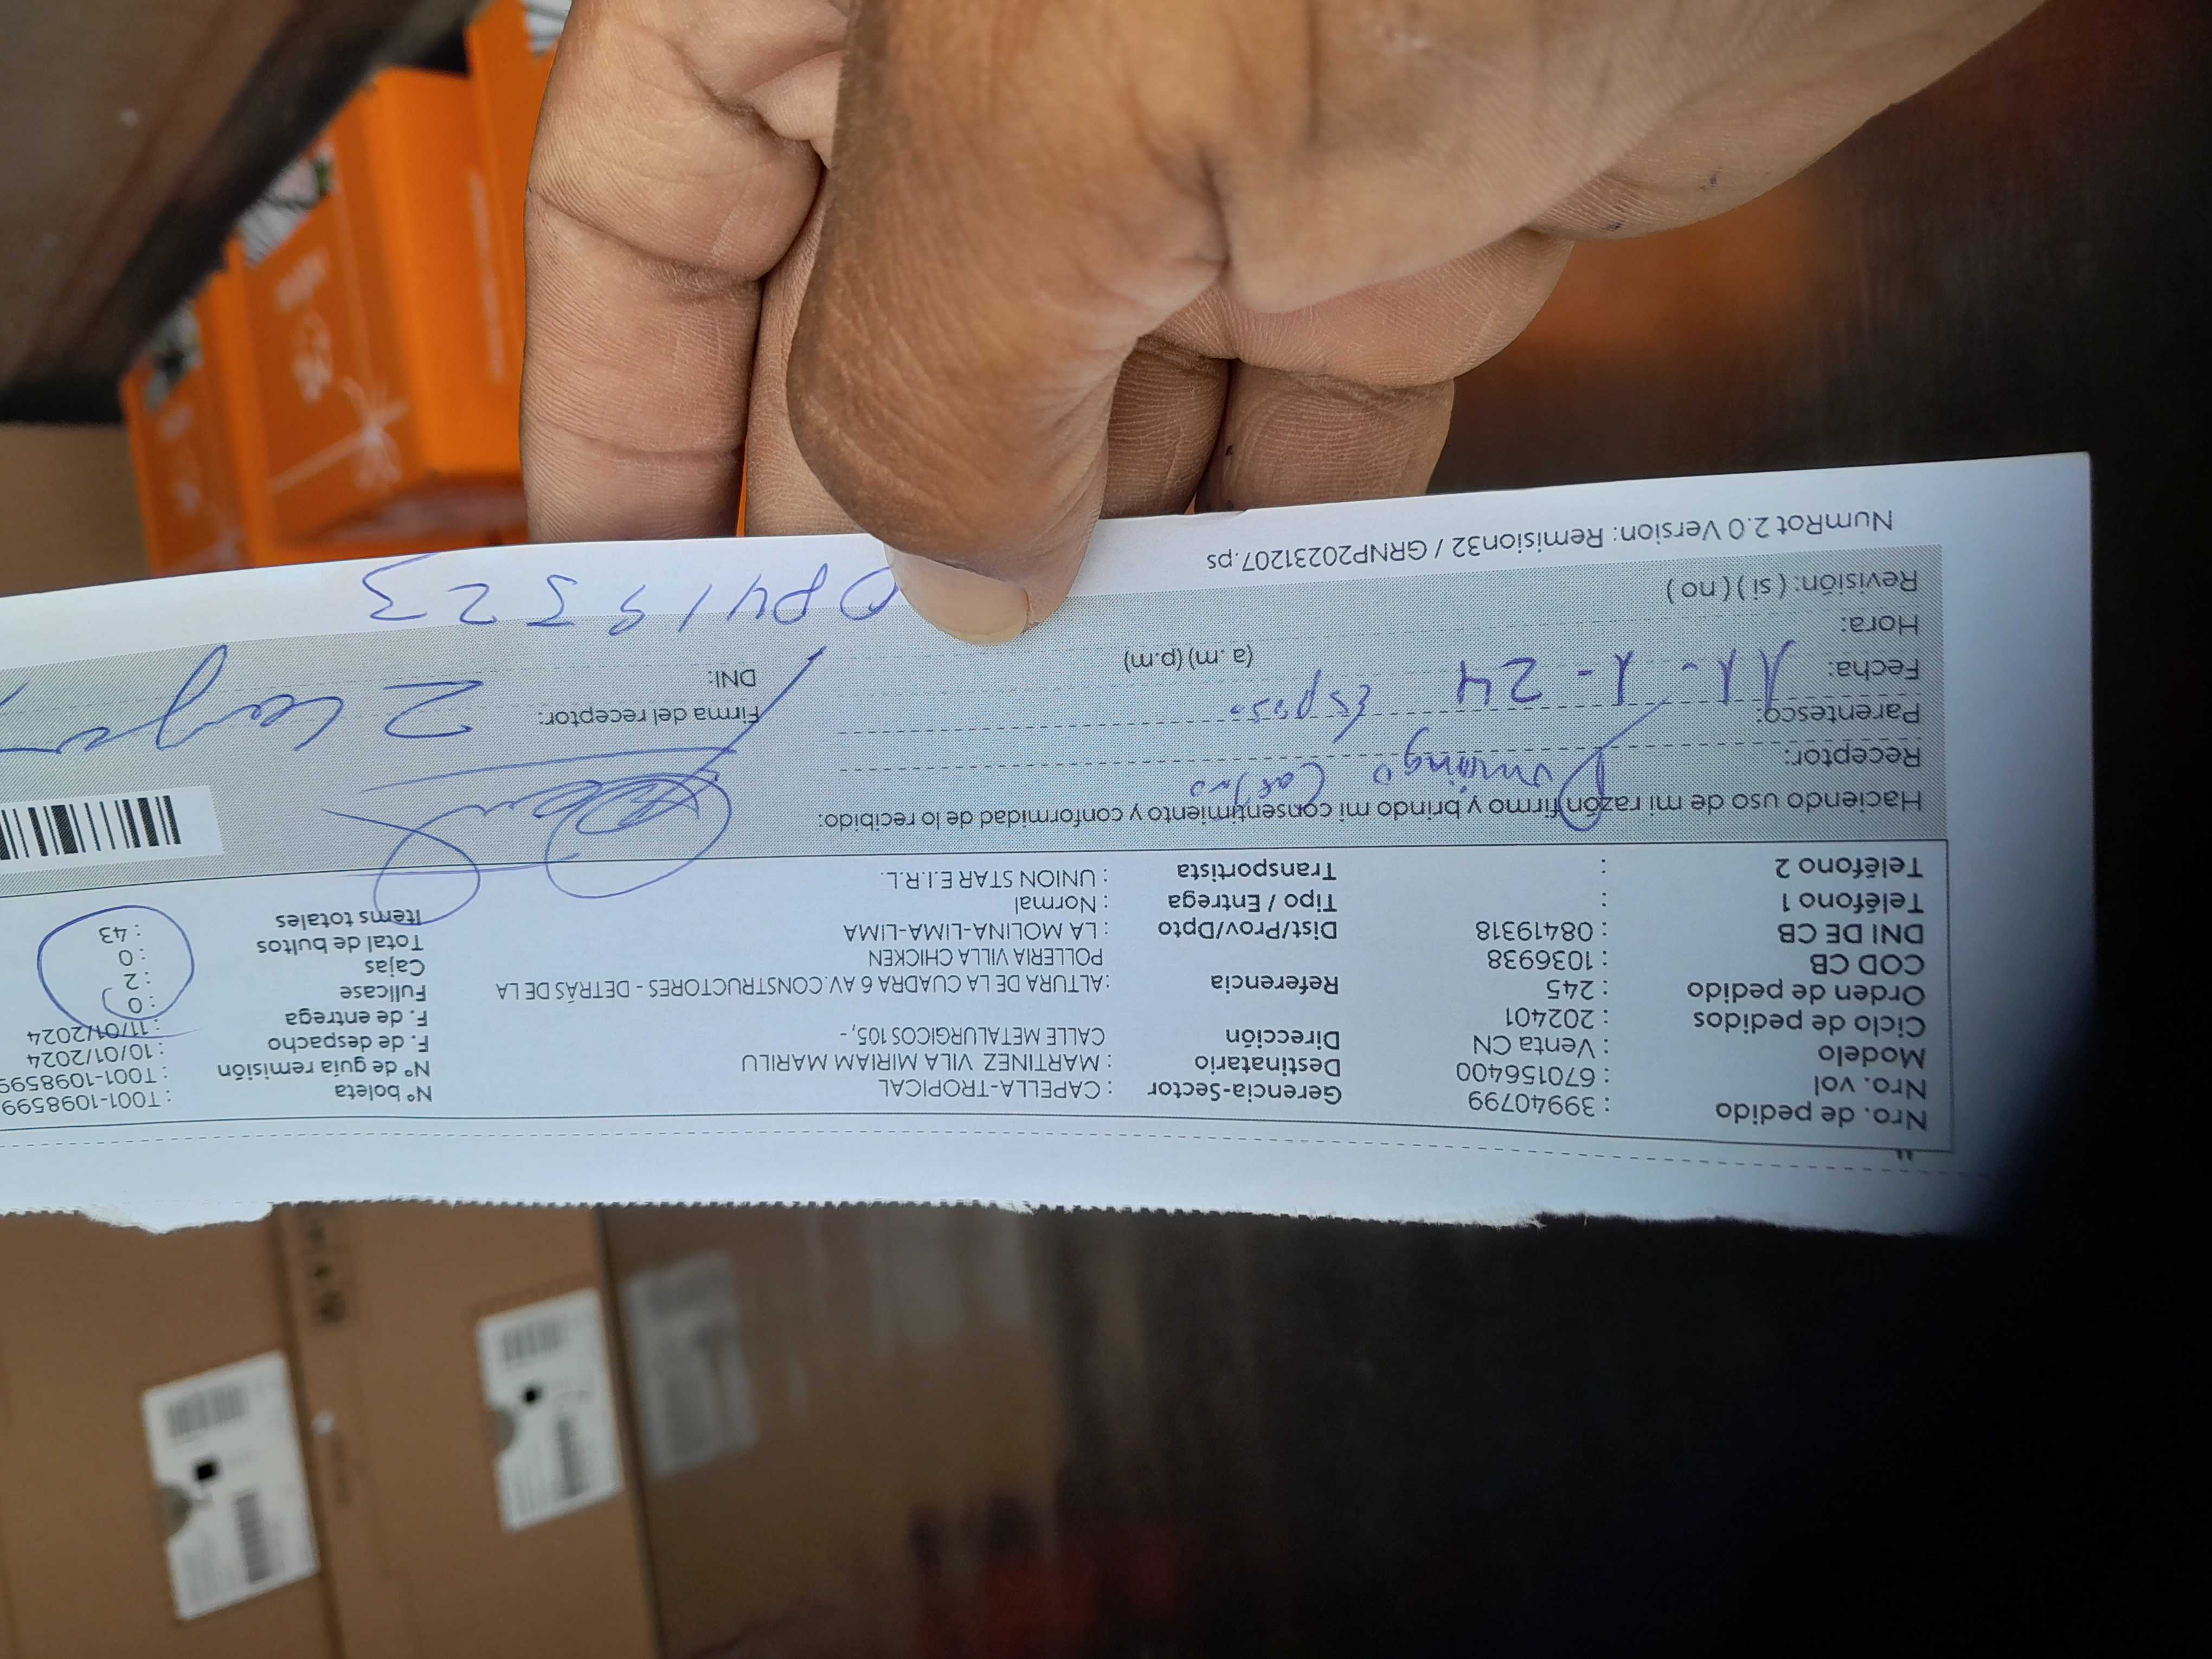 Nro. de pedido : 39940799 Gerencia-Sector : CAPELLA-TROPICAL N° boleta : T001-1098599
Nro. vol : 670156400 Destinatario : MARTINEZ VILA MIRIAM MARILU N° de guia remisión : T001-1098599
Modelo : Venta CN Dirección CALLE METALURGICOS 105, - F. de despacho : 10/01/2024
Ciclo de pedidos : 202401 F. de entrega : 11/01/2024
Orden de pedido : 245 Referencia :ALTURA DE LA CUADRA 6 AV.CONSTRUCTORES - DETRÁS DE LA Fullcase : 0
COD CB : 1036938 POLLERIA VILLA CHICKEN Cajas : 2
DNI DE CB : 08419318 Dist/Prov/Dpto : LA MOLINA-LIMA-LIMA Total de bultos : 0
Teléfono 1 : Tipo / Entrega : Normal Items totales : 43
Teléfono 2 : Transportista : UNION STAR E.I.R.L.
Haciendo uso de mi razón firmo y brindo mi consentimiento y conformidad de lo recibido:
Receptor: Domingo
Parentesco: Esposo Firma del receptor:
Fecha: 11-1-24 DNI: 2
Hora: (a.m) (p.m)
Revisión: ( si ) ( no )
NumRot 2.0 Version: Remision32 / GRNP20231207.ps